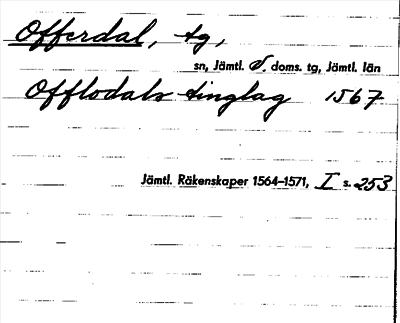 Offerdal, tg,
sn, Jämtl. V. doms. tg, Jämtl. län
Offlodals tinglag 1567
Jämtl. Räkenskaper 1564–1571, I s. 253